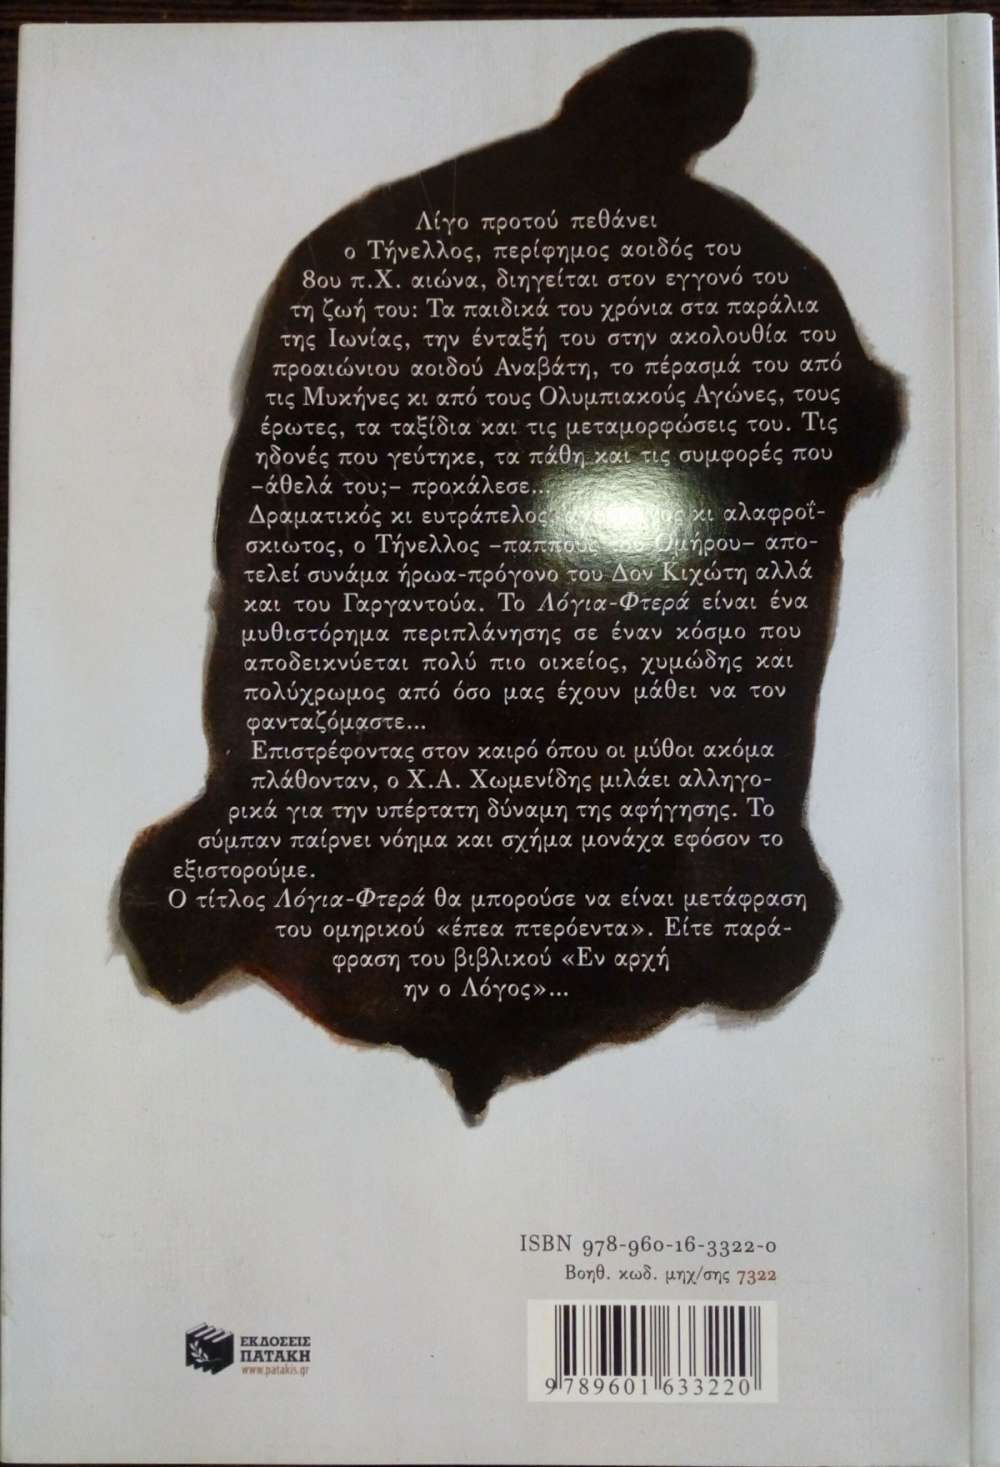 Λίγο προτού πεθάνει
ο Τήνελλος, περίφημος αοιδός του
8ου π.Χ. αιώνα, διηγείται στον εγγονό του
τη ζωή του: Τα παιδικά του χρόνια στα παράλια
της Ιωνίας, την ένταξή του στην ακολουθία του
προαιώνιου αοιδού Αναβάτη, το πέρασμά του από
τις Μυκήνες κι από τους Ολυμπιακούς Αγώνες, τους
έρωτες, τα ταξίδια και τις μεταμορφώσεις του. Τις
ηδονές που γεύτηκε, τα πάθη και τις συμφορές που
–άθελά του;– προκάλεσε...
Δραματικός κι ευτράπελος, κι αλαφροΐ-
σκιωτος, ο Τήνελλος –παππούς του Ομήρου– απο-
τελεί συνάμα ήρωα-πρόγονο του Δον Κιχώτη αλλά
και του Γαργαντούα. Το Λόγια-Φτερά είναι ένα
μυθιστόρημα περιπλάνησης σε έναν κόσμο που
αποδεικνύεται πολύ πιο οικείος, χυμώδης και
πολύχρωμος από όσο μας έχουν μάθει να τον
φανταζόμαστε...
Επιστρέφοντας στον καιρό όπου οι μύθοι ακόμα
πλάθονταν, ο Χ.Α. Χωμενίδης μιλάει αλληγο-
ρικά για την υπέρτατη δύναμη της αφήγησης. Το
σύμπαν παίρνει νόημα και σχήμα μονάχα εφόσον το
εξιστορούμε.
Ο τίτλος Λόγια-Φτερά θα μπορούσε να είναι μετάφραση
του ομηρικού «έπεα πτερόεντα». Είτε παρά-
φραση του βιβλικού «Εν αρχή
ην ο Λόγος»...
ISBN 978-960-16-3322-0
Βοηθ. κωδ. μηχ/σης 7322
ΕΚΔΟΣΕΙΣ
ΠΑΤΑΚΗ
www.patakis.gr
9 789601 633220